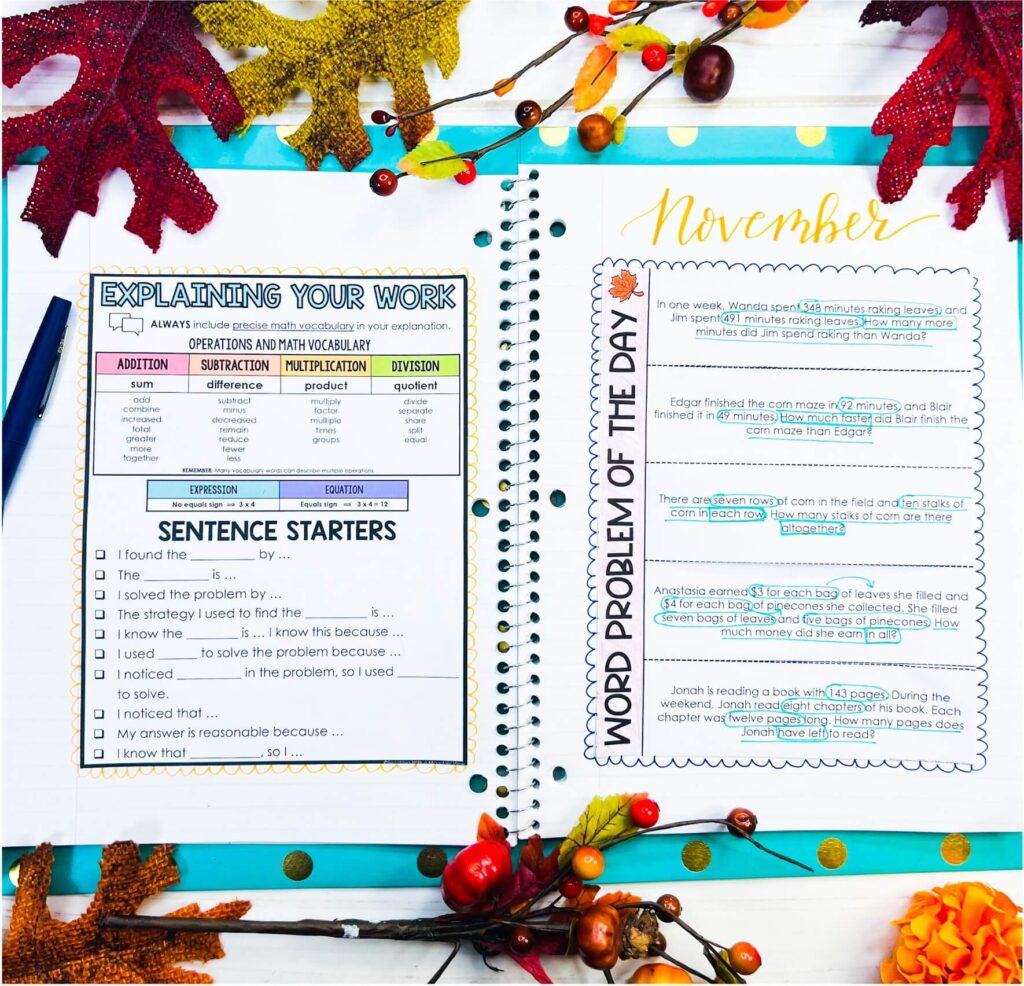 EXPLAINING YOUR WORK
ALWAYS include precise math vocabulary in your explanation.
OPERATIONS AND MATH VOCABULARY
ADDITION SUBTRACTION MULTIPLICATION DIVISION
sum difference product quotient
add subtract multiply divide
combine minus factor separate
increased decreased multiple share
total remain times split
greater reduce groups equal
more fewer
together less
REMEMBER: Many vocabulary words can describe multiple operations.
EXPRESSION EQUATION
No equals sign ⇒ 3 x 4 Equals sign ⇒ 3 x 4 = 12
SENTENCE STARTERS
I found the __________ by …
The __________ is …
I solved the problem by …
The strategy I used to find the __________ is …
I know the ________ is … I know this because …
I used ______ to solve the problem because …
I noticed __________ in the problem, so I used __________
to solve.
I noticed that …
My answer is reasonable because …
I know that ___________, so I …
November
WORD PROBLEM OF THE DAY
In one week, Wanda spent 348 minutes raking leaves, and
Jim spent 491 minutes raking leaves. How many more
minutes did Jim spend raking than Wanda?
Edgar finished the corn maze in 92 minutes, and Blair
finished it in 49 minutes. How much faster did Blair finish the
corn maze than Edgar?
There are seven rows of corn in the field and ten stalks of
corn in each row. How many stalks of corn are there
altogether?
Anastasia earned $3 for each bag of leaves she filled and
$4 for each bag of pinecones she collected. She filled
seven bags of leaves and five bags of pinecones. How
much money did she earn in all?
Jonah is reading a book with 143 pages. During the
weekend, Jonah read eight chapters of his book. Each
chapter was twelve pages long. How many pages does
Jonah have left to read?